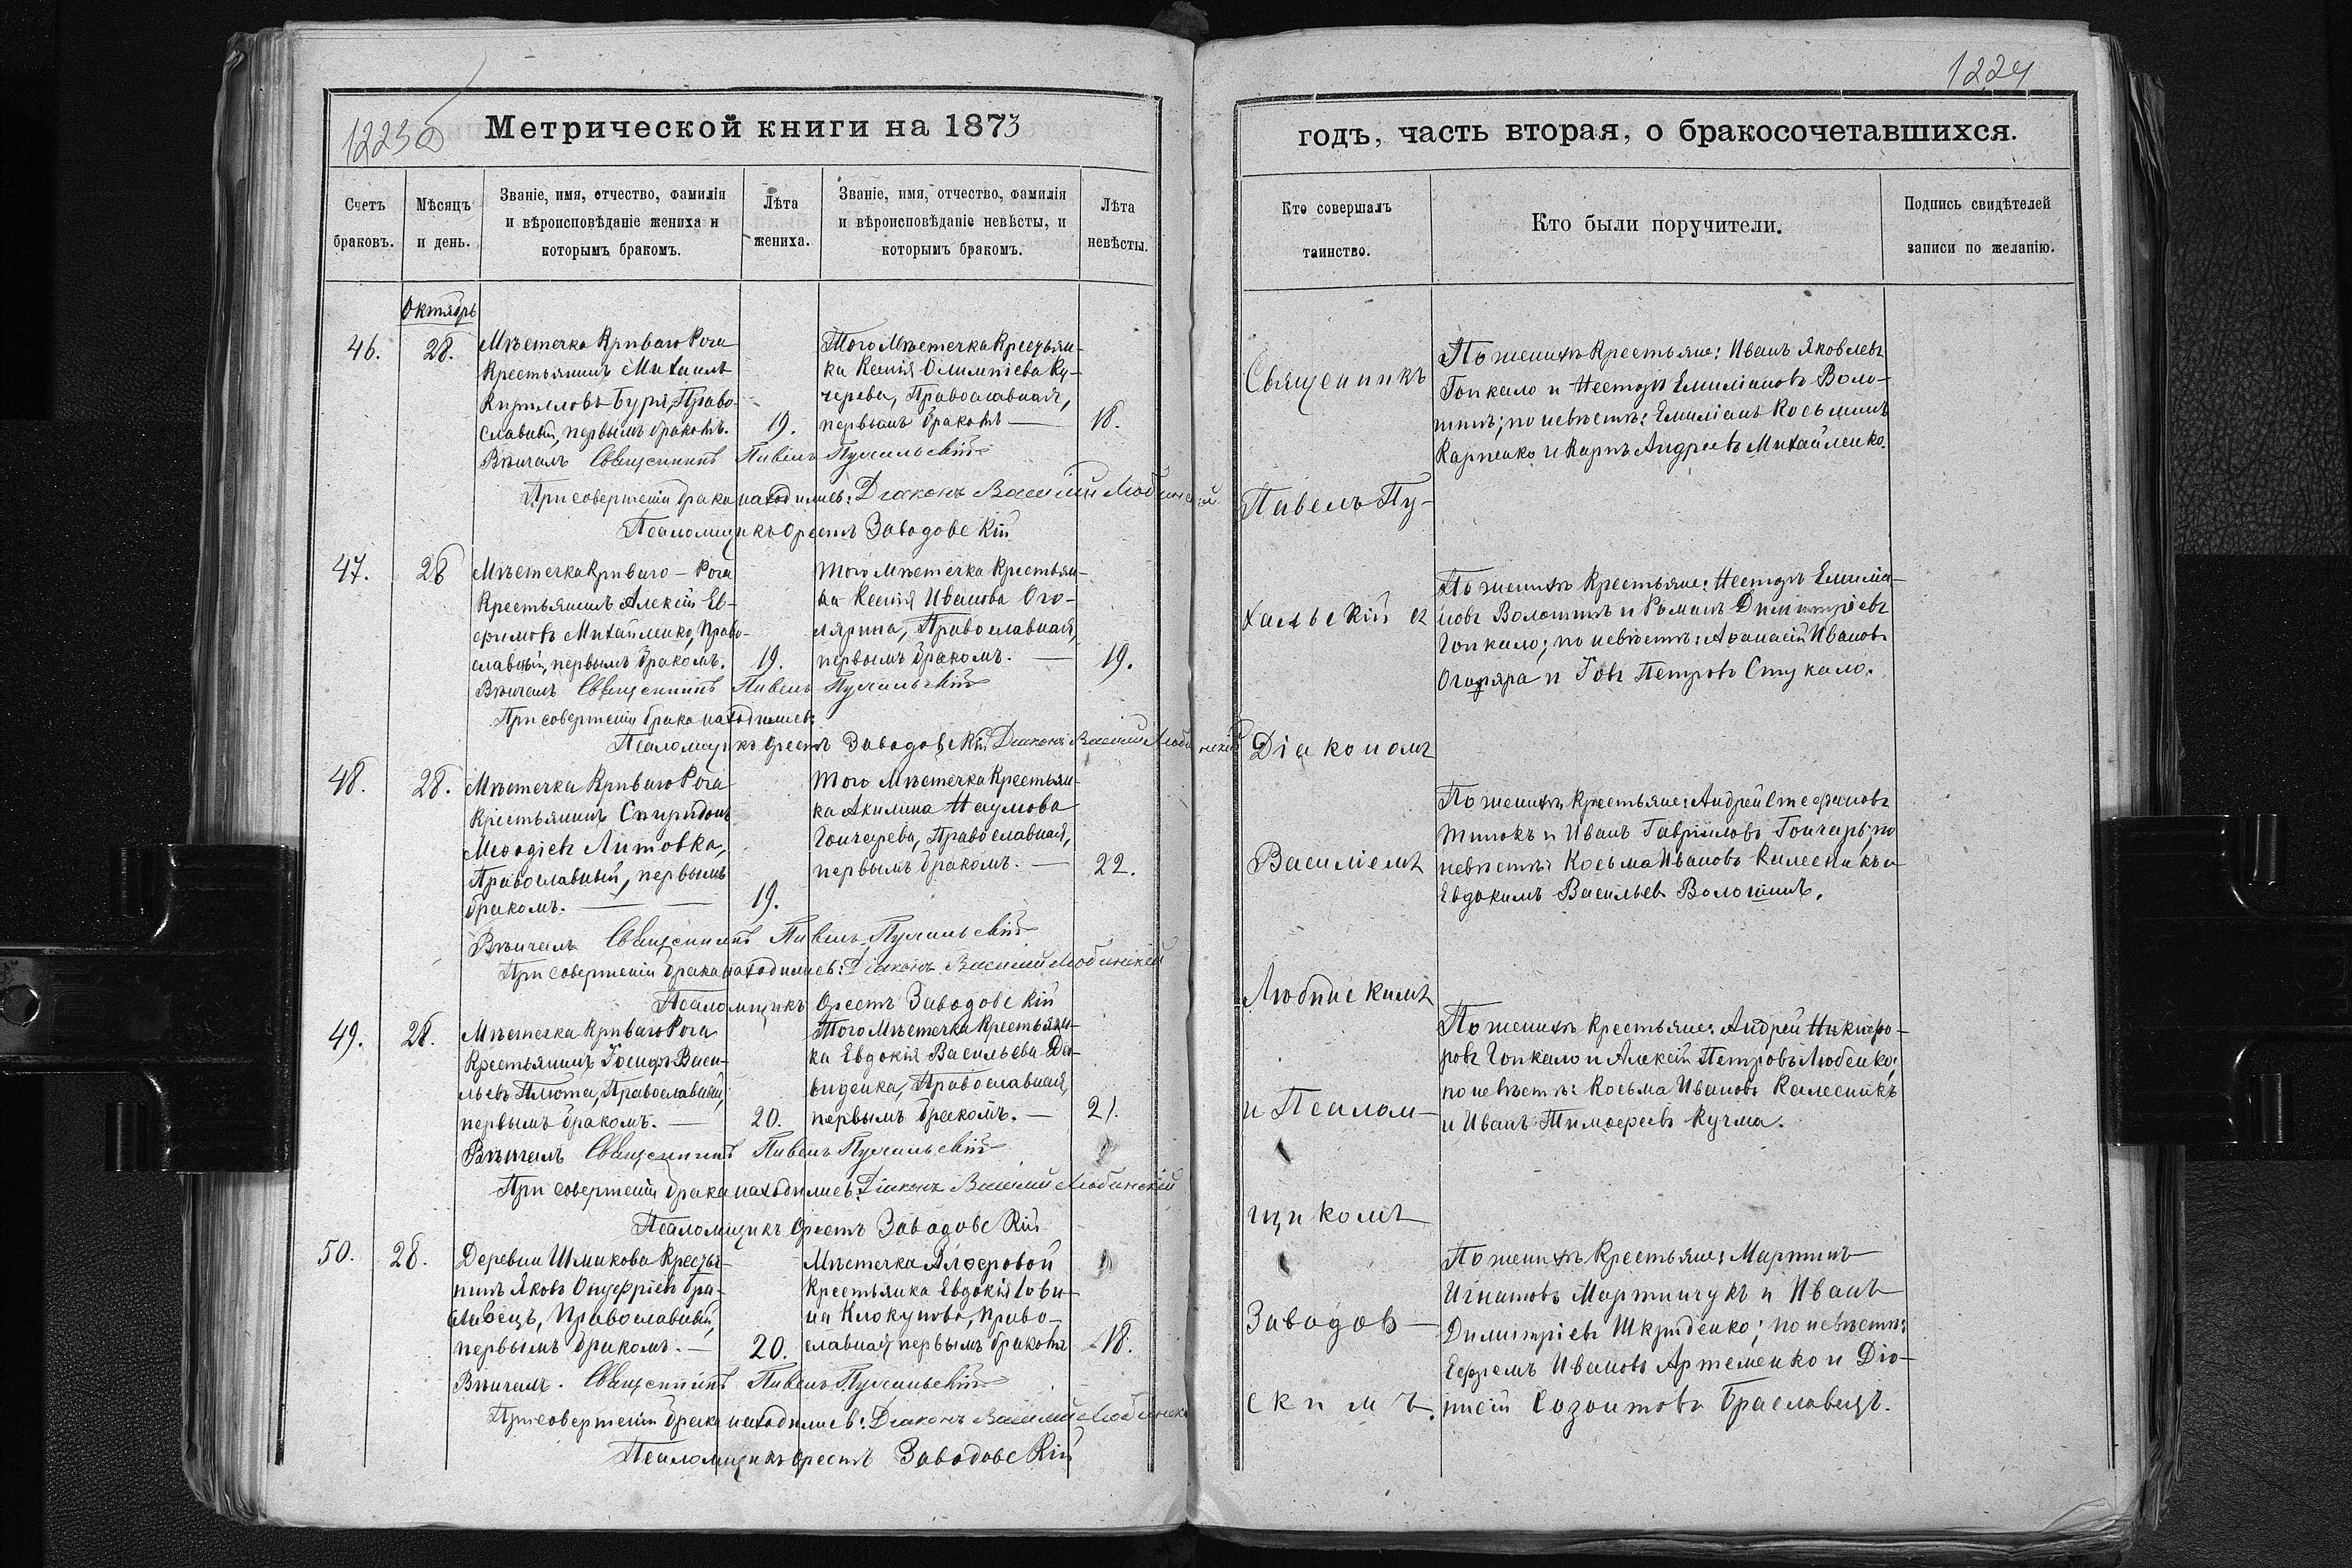 1223об
Метрической книги на 1873
Счетъ браковъ.
Мѣсяцъ и день.
Званіе, имя, отчество, фамилія и вѣроисповѣданіе жениха и которымъ бракомъ.
Лѣта жениха.
Званіе, имя, отчество, фамилія и вѣроисповѣданіе невѣсты, и которымъ бракомъ.
Лѣта невѣсты.
Октябрь
46. 28.
Мѣстечка Криваго Рога
Крестьянинъ Михаилъ
Кирилловъ Буря, Право-
славный, первымъ бракомъ.
19.
Того Мѣстечка Крестьян-
ка Ксенія Олимпіева Ку-
черева, Православная,
первымъ бракомъ
18.
Вѣнчалъ Священникъ Павелъ Пухальскій
При совершеніи брака находились: Діаконъ Василій Любинскій
Псаломщикъ Орестъ Заводовскій
47. 28
Мѣстечка Криваго-Рога
Крестьянинъ Алексій Ев-
фимовъ Михайленко, Право-
славный, первымъ бракомъ.
19.
того Мѣстечка Крестьян-
ка Ксенія Иванова Ого-
лярина, Православная,
первымъ бракомъ.
19.
Вѣнчалъ Священникъ Павелъ Пухальскій
При совершеніи брака находились:
Псаломщикъ Орестъ Заводовскій Діаконъ Василій Любинскій
48. 28.
Мѣстечка Криваго Рога
Крестьянинъ Спиридонъ
Меѳодіевъ Литовка,
Православный, первымъ
бракомъ.
19.
того Мѣстечка Крестьян-
ка Акилина Наумова
Гончерева, Православная,
первымъ бракомъ.
22.
Вѣнчалъ Священникъ Павелъ Пухальскій
При совершеніи брака находились: Діаконъ Василій Любинскій
Псаломщикъ Орестъ Заводовскій
49. 28.
Мѣстечка Криваго Рога
Крестьянинъ Іосифъ Васи-
льевъ Плюта, Православный,
первымъ бракомъ.
20.
Того Мѣстечка Крестьян-
ка Евдокія Васильева Да-
виденка, Православная,
первымъ бракомъ.
21.
Вѣнчалъ Священникъ Павелъ Пухальскій
При совершеніи брака находились: Діаконъ Василій Любинскій
Псаломщикъ Орестъ Заводовскій
50. 28.
Деревни Шмакова Крестья-
нинъ Яковъ Онуфріевъ Бра-
славецъ, Православный,
первымъ бракомъ.
20.
Мѣстечка Алферовой
Крестьянка Евдокія Сави-
на Клокунова, Право-
славная, первымъ бракомъ
18.
Вѣнчалъ. Священникъ Павелъ Пухальскій
При совершеніи брака находились: Діаконъ Василій Любинскі
Псаломщикъ Орестъ Заводовскій
1224
годъ, часть вторая, о бракосочетавшихся.
Кто совершалъ таинство.
Кто были поручители.
Подпись свидѣтелей записи по желанію.
Священникъ
Павелъ Пу-
хальскій съ
Діакономъ
Василіемъ
Любинскимъ
и Псалом-
щикомъ
Заводов-
скимъ.
По женихѣ Крестьяне: Иванъ Яковлевъ
Гопкало и Несторъ Емиліановъ Воло-
шинъ; по невѣстѣ: Емиліанъ Косьминъ
Карпенко и Карпъ Андреевъ Михайленко.
По женихѣ Крестьяне: Несторъ Емиліа-
новъ Волошинъ и Романъ Димитріевъ
Гопкало; по невѣстѣ: Аѳанасій Ивановъ
Огоряра и Іовъ Петровъ Стукало.
По женихѣ Крестьяне: Андрей Стефановъ
Тинокъ и Иванъ Гавріиловъ Гончаръ; по
невѣстѣ: Косьма Ивановъ Калесникъ и
Евдокимъ Васильевъ Волошинъ.
По женихѣ Крестьяне: Андрей Никифо-
ровъ Гопкало и Алексій Петровъ Любенко;
по невѣстѣ: Косьма Ивановъ Калесникъ
и Иванъ Тимоѳеевъ Кучма.
По женихѣ Крестьяне: Мартинъ
Игнатовъ Мартинчукъ и Иванъ
Димитріевъ Шкриденко; по невѣстѣ:
Ефремъ Ивановъ Артеменко и Діо-
нисій Созонтовъ Браславецъ.